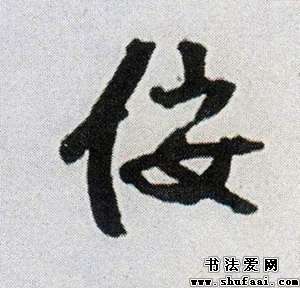 佞
书法爱网
www.shufaai.com